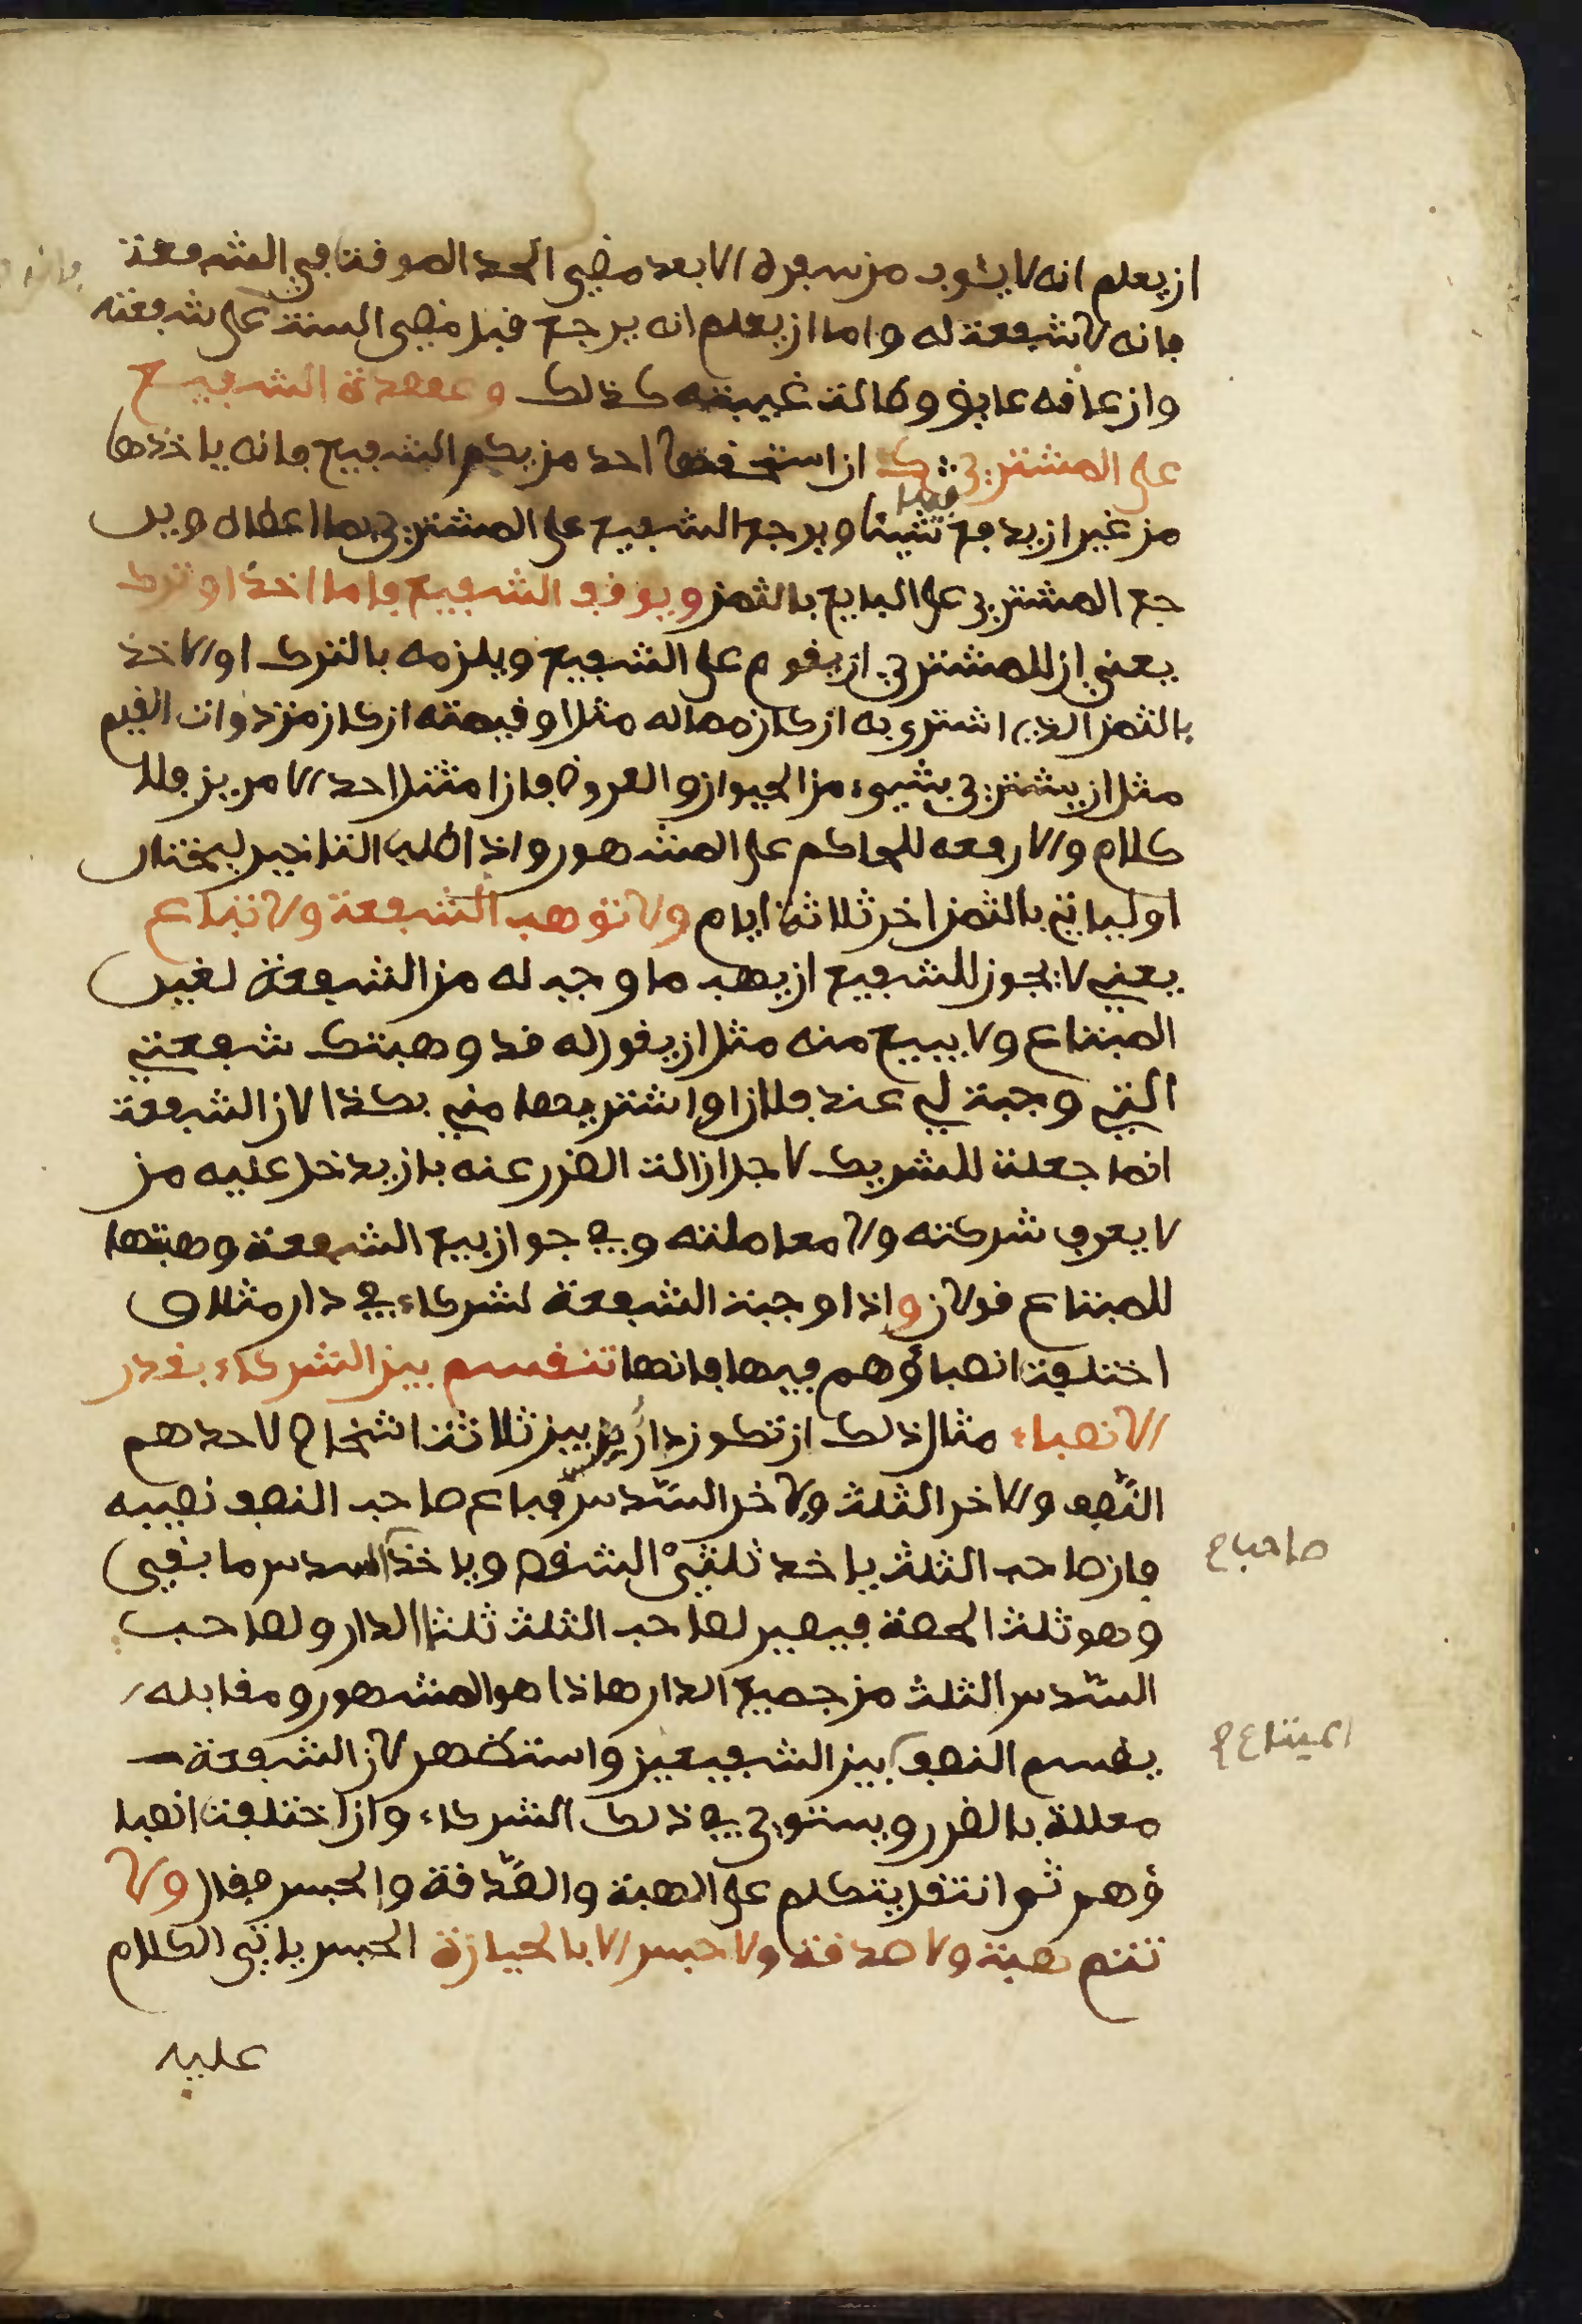 ان يعلم انه لا يئوب من سفره الا بعد مضي الحد الموقت في الشفعة
فانه لا شفعة له واما ان يعلم انه يرجع قبل مضي السنة على شفعته
وان عاقه عايق وطالت غيبته كذلك وعهدة الشفيع
على المشتري ان استحقها احد من يد الشفيع فانه ياخذها
من غير ان يدفع شيئا ويرجع الشفيع على المشتري بما اعطاه وير
جع المشتري على البايع بالثمن ويوقف الشفيع فاما اخذ او ترك
يعني ان للمشتري ان يقوم على الشفيع ويلزمه بالترك او الاخذ
بالثمن الذي اشترى به ان كان مما له مثل او قيمته ان كان من ذوات القيم
مثل ان يشتري بشيء من الحيوان والعروض فان امتثل احد الامرين فلا
كلام والا رفعه للحاكم على المشهور واذا طلب التاخير ليختار
او لياتي بالثمن اخر ثلاثة ايام ولا توهب الشفعة ولا تباع
يعني لا يجوز للشفيع ان يهب ما وجب له من الشفعة لغير
المبتاع ولا يبيع منه مثل ان يقول له قد وهبتك شفعتي
التي وجبة لي عند فلان او اشتريها مني بكذا لان الشفعة
انما جعلت للشريك لاجل ازالت الضرر عنه بان يدخل عليه من
لا يعرف شركته ولا معاملته وفي جواز بيع الشفعة وهبتها
للمبتاع قولان واذا وجبت الشفعة لشركاء في دار مثلا و
اختلفت انصباؤهم فيها فانها تنقسم بين الشركاء بقدر
الانصباء مثال ذلك ان تكون دار بين ثلاثة اشخاص لاحدهم
النّصف والاخر الثلث والاخر السّدس فباع صاحب النصف نصيبه
فان صاحب الثلث ياخذ ثلثيْ الشقص وياخذ السدس ما بقي
وهو ثلث الحصة فيصير لصاحب الثلث ثلثا الدار ولصاحب
السّدس الثلث من جميع الدار هاذا هو المشهور ومقابله
يقسم النصف بين الشفيعين واستظهر لان الشفعة
معللة بالضرر ويستوي في ذلك الشركاء وان اختلفت انصبا
ؤهم ثم انتقل يتكلم على الهبة والصّدقة والحبس فقال ولا
تتم هبة ولا صدقة ولا حبس الا بالحيازة الحبس ياتي الكلام
عليه
صاحب ح
المبتاع ح